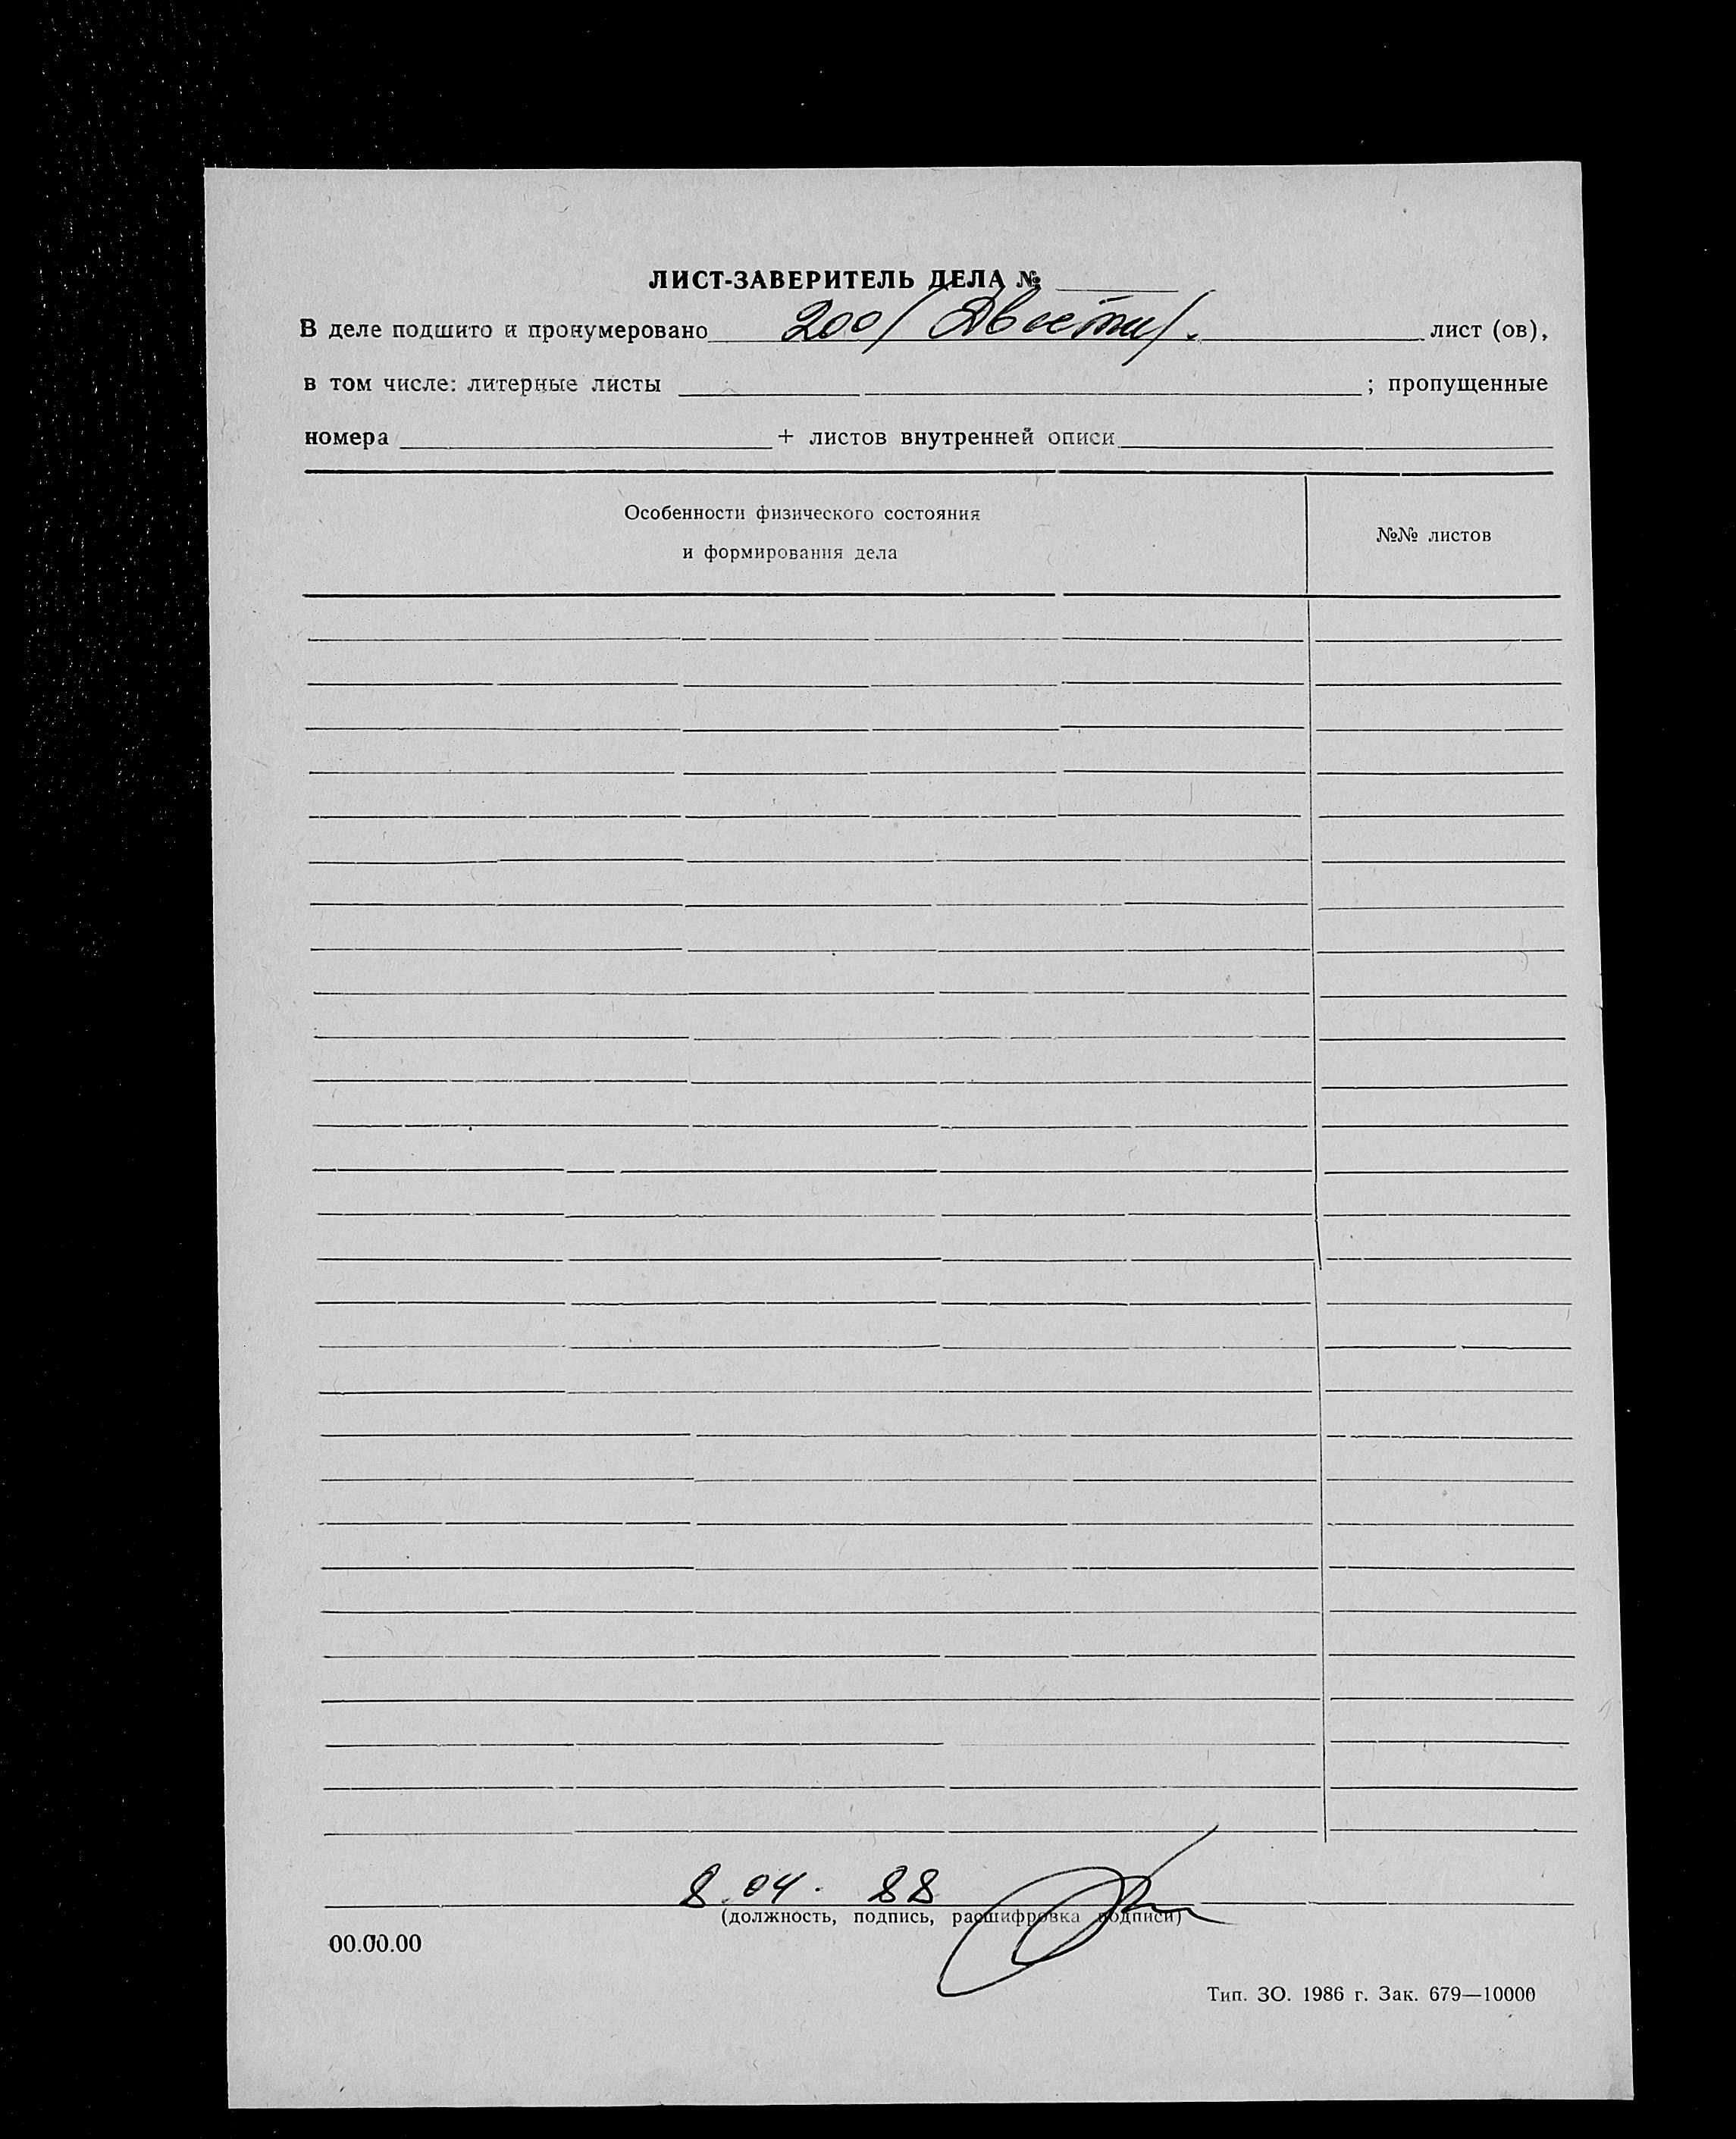 ЛИСТ-ЗАВЕРИТЕЛЬ ДЕЛА №
В деле подшито и пронумеровано 200/ Двести/. лист (ов),
в том числе: литерные листы ; пропущенные
номера + листов внутренней описи
Особенности физического состояния
и формирования дела
№№ листов
8.04. 88
(должность, подпись, расшифровка подписи)
00.00.00
Тип. ЗО. 1986 г. Зак. 679—10000